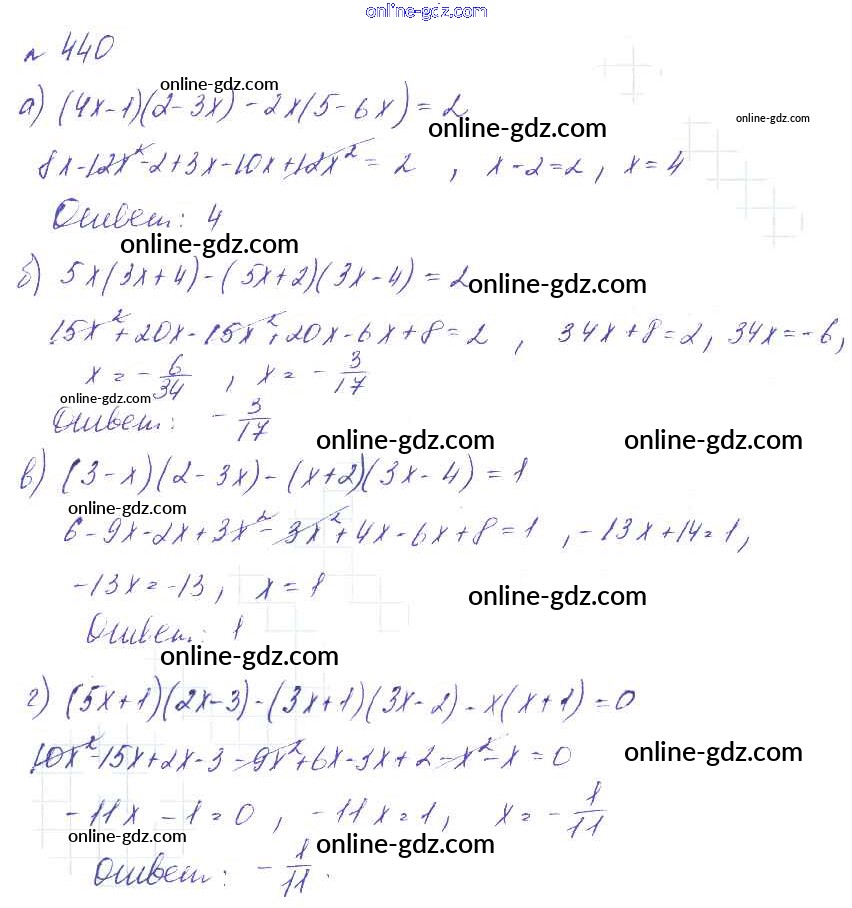 online-gdz.com
№ 440
online-gdz.com
а) (4x-1)(2-3x)-2x(5-6x)=2
online-gdz.com online-gdz.com
8x-12x²-2+3x-10x+12x²=2, x-2=2, x=4
Ответ: 4
online-gdz.com
б) 5x(3x+4)-(5x+2)(3x-4)=2
online-gdz.com
15x²+20x-15x²+20x-6x+8=2, 34x+8=2, 34x=-6,
x=-6/34, x=-3/17
online-gdz.com
Ответ: -3/17
online-gdz.com online-gdz.com
в) (3-x)(2-3x)-(x+2)(3x-4)=1
online-gdz.com
6-9x-2x+3x²-3x²+4x-6x+8=1, -13x+14=1,
-13x=-13, x=1
online-gdz.com
Ответ: 1
online-gdz.com
г) (5x+1)(2x-3)-(3x+1)(3x-2)-x(x+1)=0
10x²-15x+2x-3-9x²+6x-3x+2-x²-x=0
online-gdz.com
-11x-1=0, -11x=1, x=-1/11
online-gdz.com online-gdz.com
Ответ: -1/11.